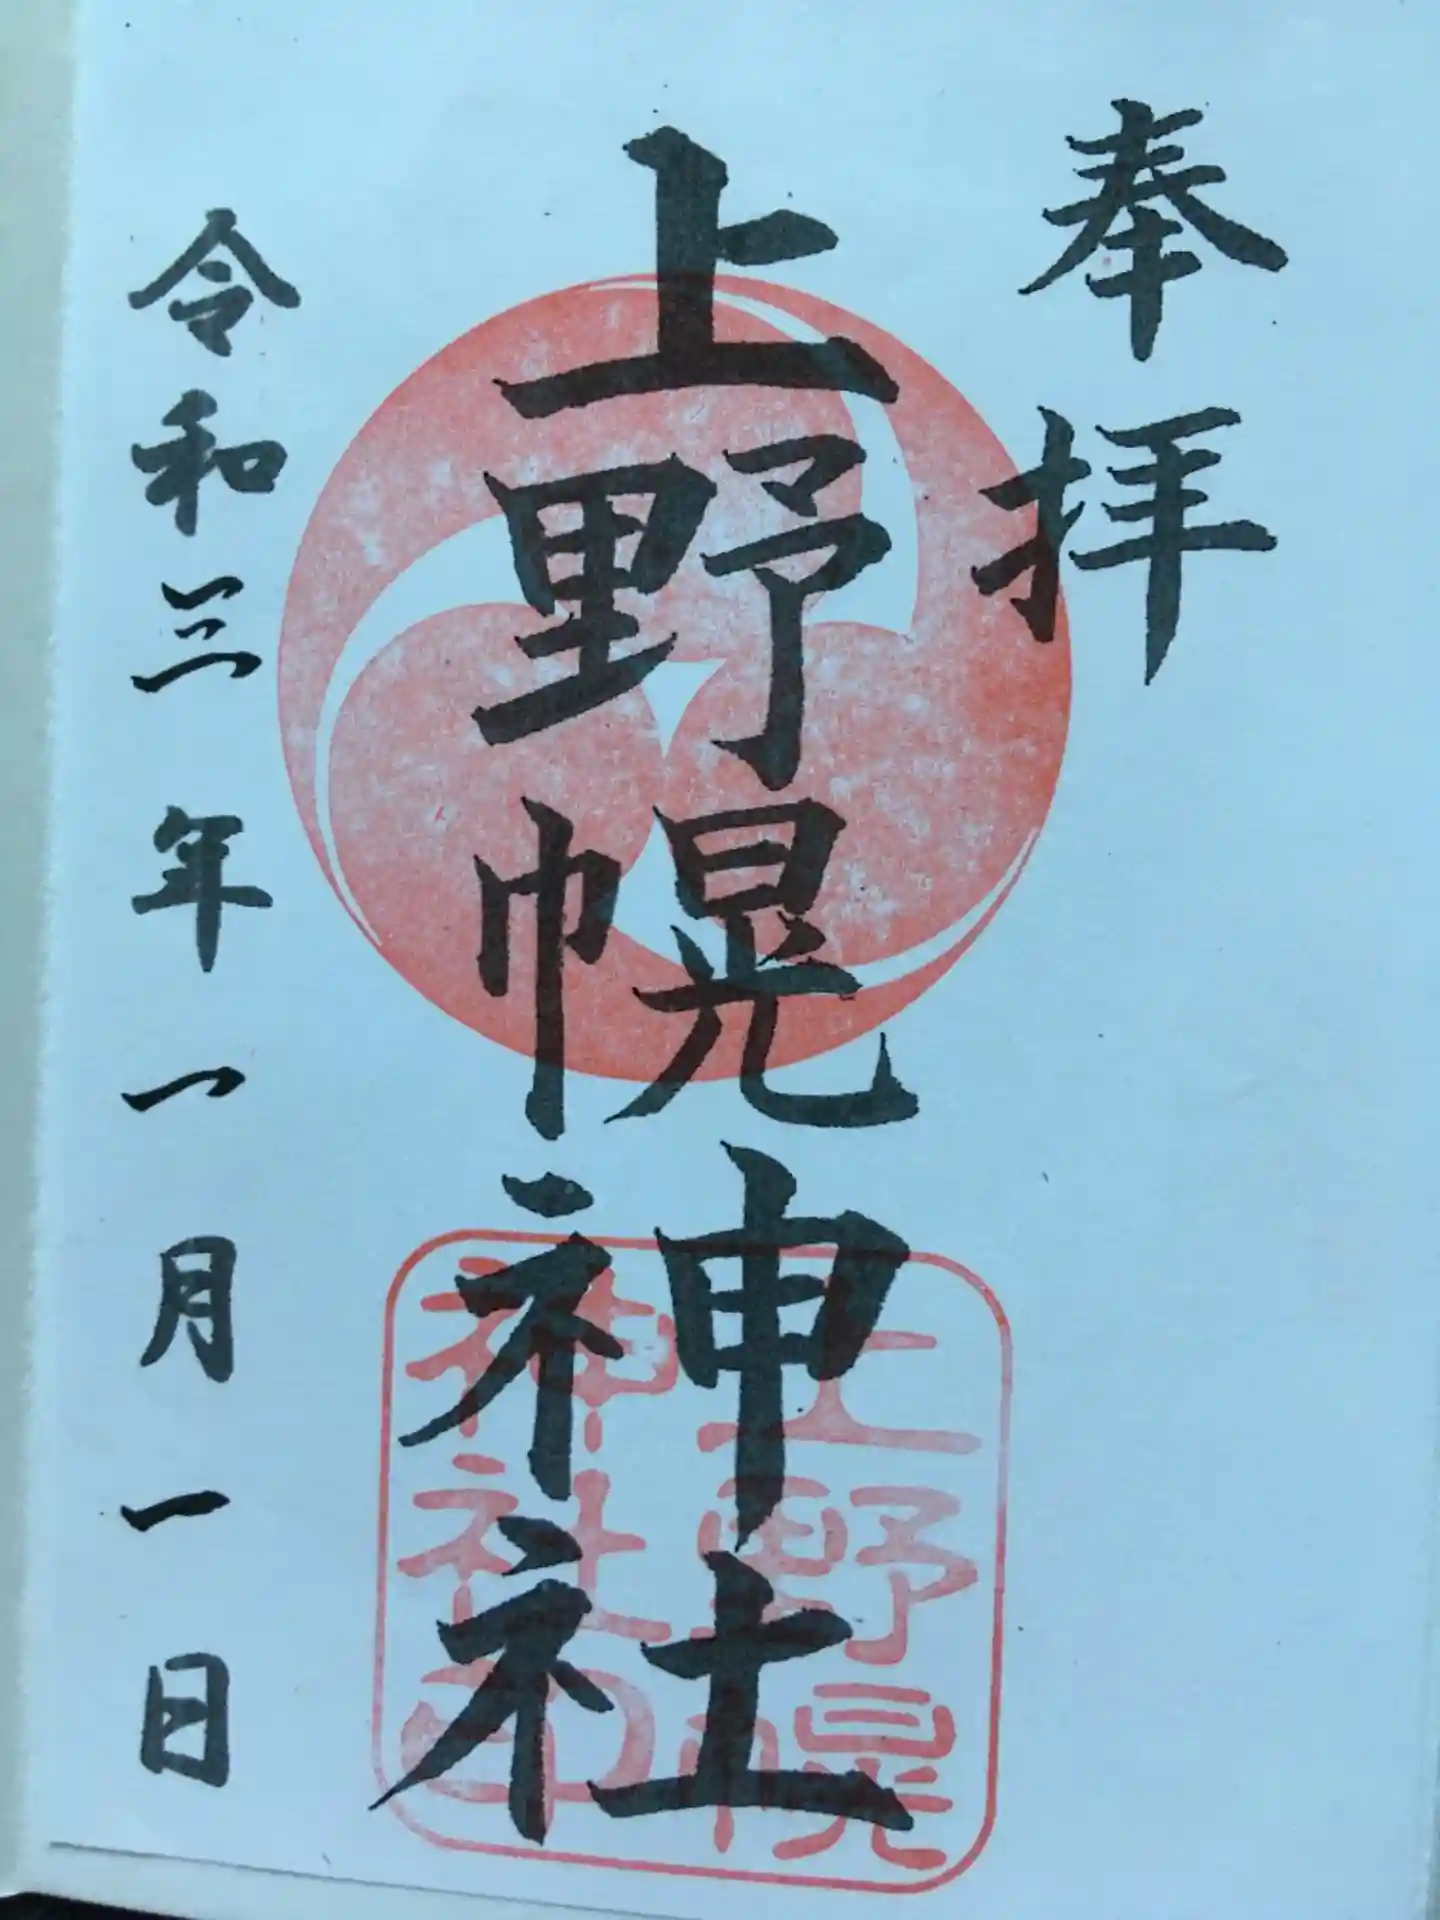 奉拝
上野幌神社
上野幌
神社印
令和三年一月一日